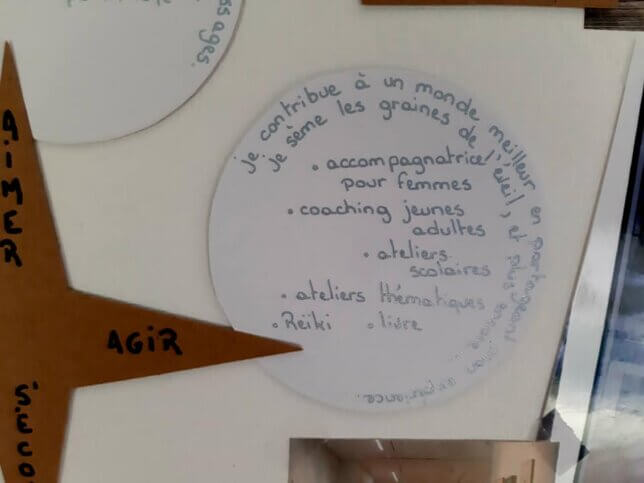 ssages.
AiMER
AGiR
S'ECO
je contribue à un monde meilleur en partageant mon expérience.
je sème les graines de l'éveil, et plus encore...
• accompagnatrice
pour femmes
• coaching jeunes
adultes
• ateliers
scolaires
• ateliers thématiques
• Reïki • livre